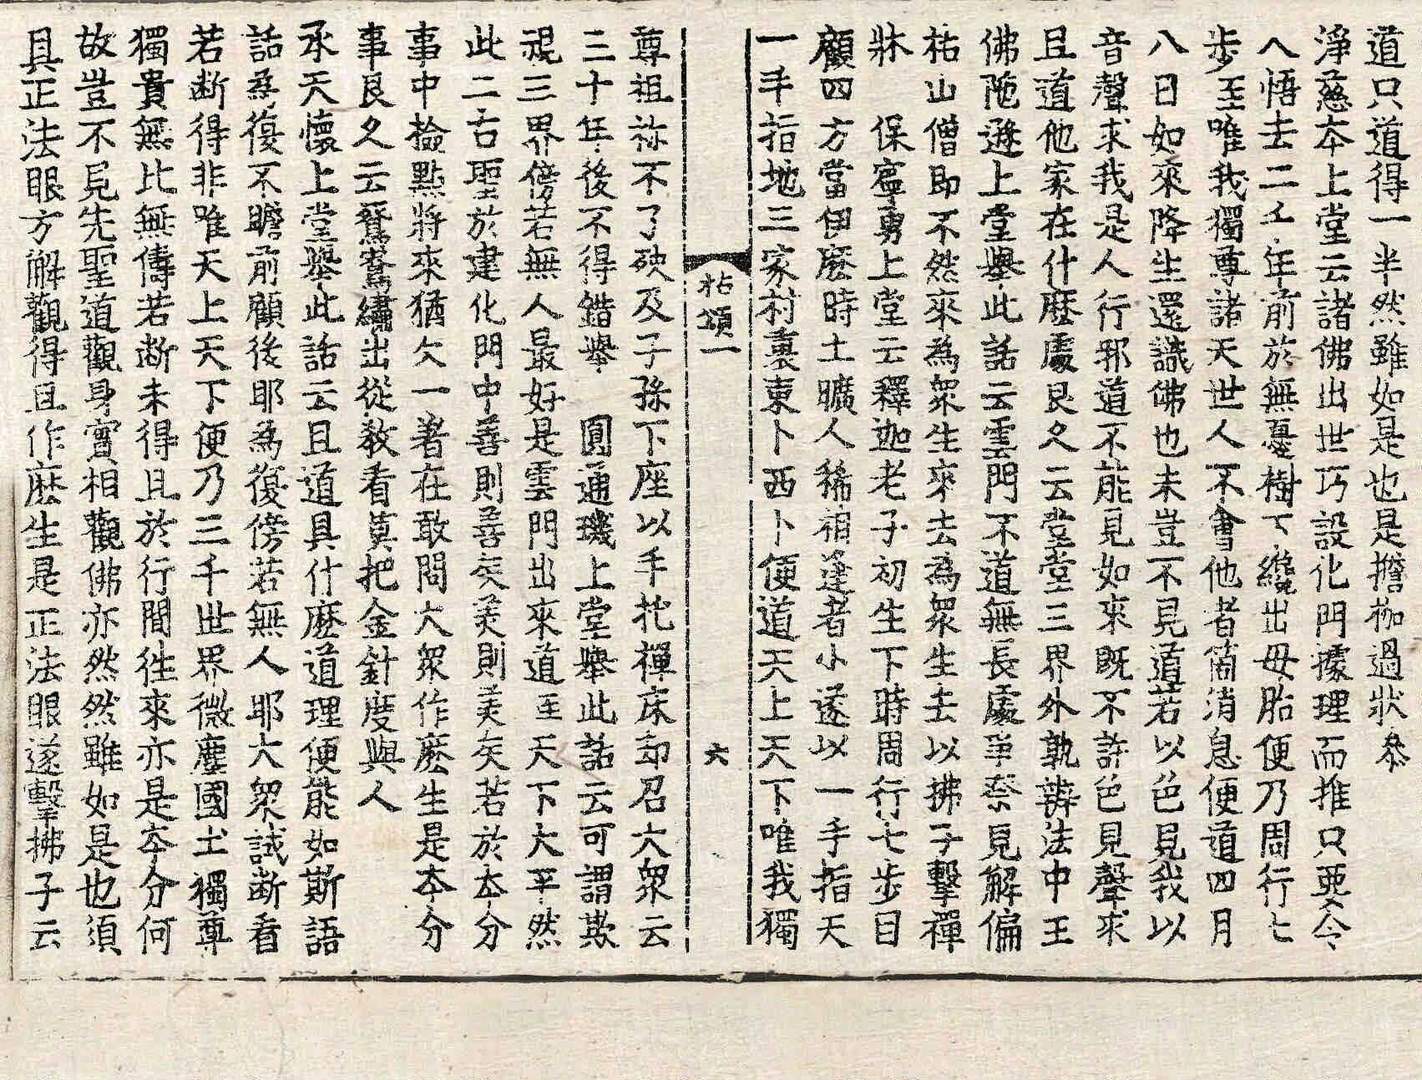 道只道得一半然雖如是也是擔枷過狀叅
淨慈本上堂云諸佛出世巧設化門據理而推只要令
人悟去二千年前於無憂樹下纔出母胎便乃周行七
步至唯我獨尊諸天世人不會他者箇消息便道四月
八日如來降生還識佛也未豈不見道若以色見我以
音聲求我是人行邪道不能見如來既不許色見聲求
且道他家在什麽處良久云堂堂三界外孰辨法中王
佛陁遜上堂擧此話云雲門不道無長處爭奈見解偏
祜山僧即不然來為衆生來去為衆生去以拂子擊禪
牀 保寧勇上堂云釋迦老子初生下時周行七步目
顧四方當伊麽時土曠人稀相逢者小遂以一手指天
一手指地三家村裏東卜西卜便道天上天下唯我獨
拈頌一 六
尊祖祢不了殃及子孫下座以手托禪床却召大衆云
三十年後不得錯擧 圓通璣上堂擧此話云可謂欺
視三界傍若無人最好是雲門出來道至天下大平然
此二古聖於建化門中善則善矣美則美矣若於本分
事中撿點將來猶欠一著在敢問大衆作麽生是本分
事良久云鴛鴦繡出從教看莫把金針度與人
承天懷上堂擧此話云且道具什麽道理便能如斯語
話為復不瞻前顧後耶為復傍若無人耶大衆試断看
若断得非唯天上天下便乃三千世界微塵國土獨尊
獨貴無比無儔若断未得且於行間徃來亦是本分何
故豈不見先聖道觀身實相觀佛亦然然雖如是也須
具正法眼方解觀得且作麽生是正法眼遂擊拂子云